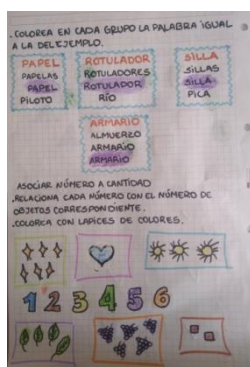 .COLOREA EN CADA GRUPO LA PALABRA IGUAL
A LA DEL EJEMPLO.
PAPEL
PAPELAS
PAPEL
PILOTO
ROTULADOR
ROTULADORES
ROTULADOR
RÍO
SILLA
SILLAS
SILLA
PICA
ARMARIO
ALMUERZO
ARMARIO
ARMARIO
ASOCIAR NÚMERO A CANTIDAD
.RELACIONA CADA NÚMERO CON EL NÚMERO DE
OBJETOS CORRESPONDIENTE.
.COLOREA CON LAPICES DE COLORES.
1 2 3 4 5 6